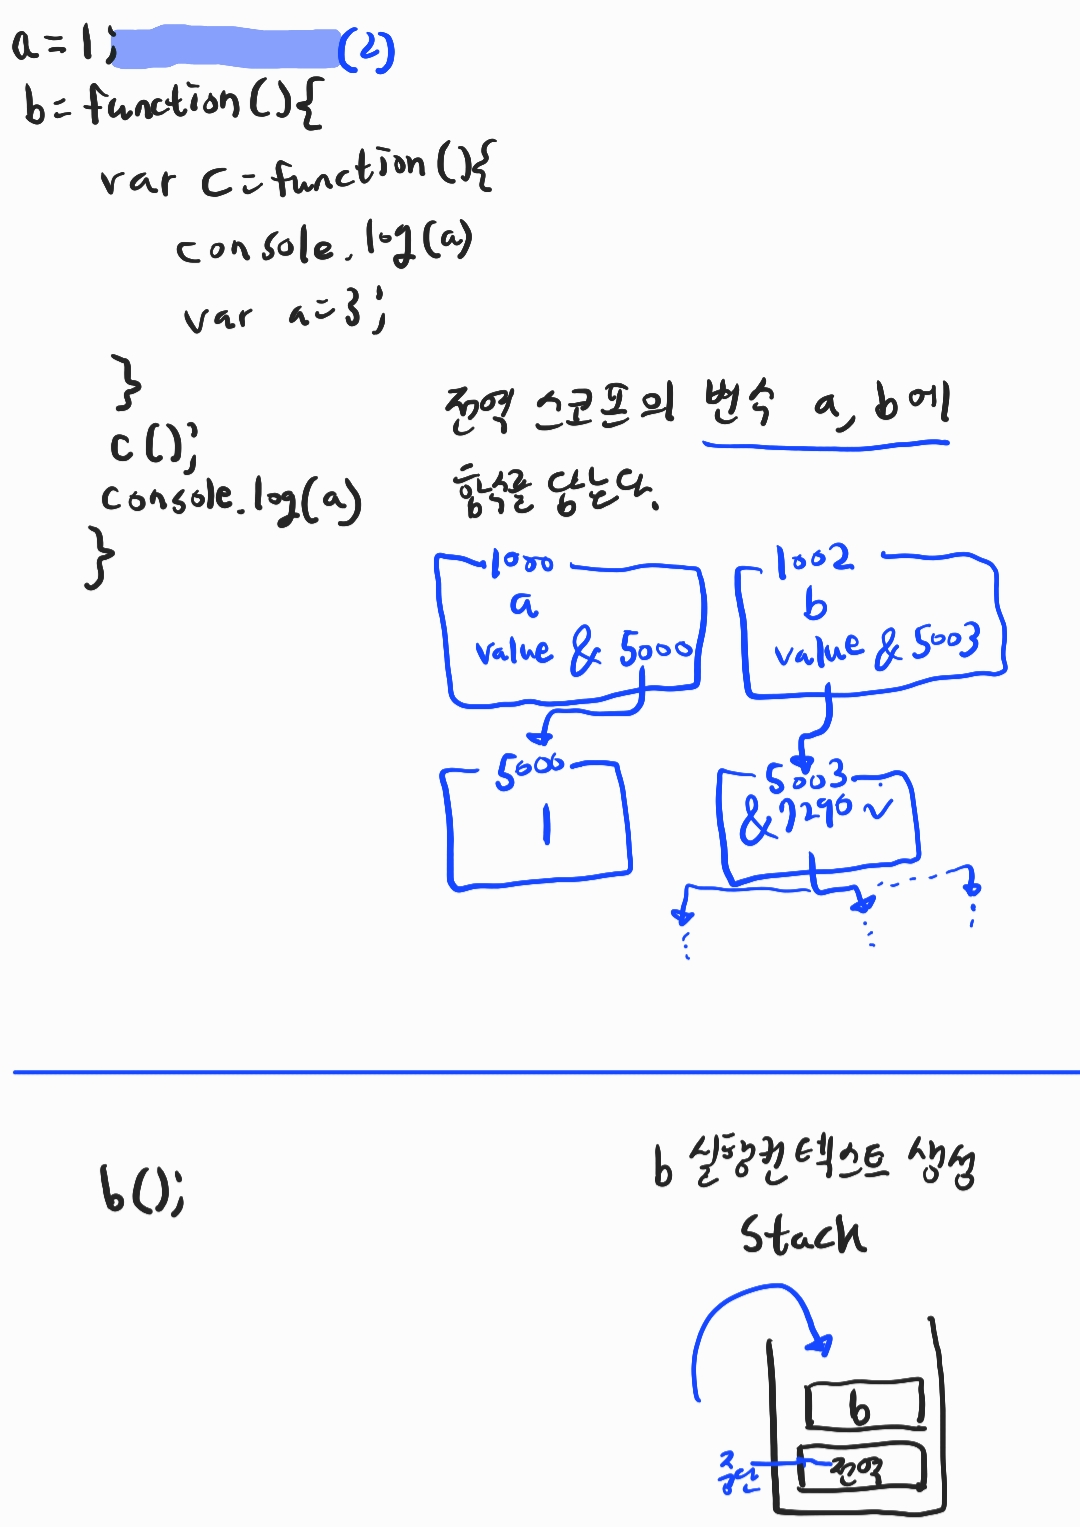 a=1; (2)
b=function(){
var c=function(){
console.log(a)
var a=3;
}
c();
console.log(a)
}
전역 스코프의 변수 a, b에
함수를 담는다.
1000
a
value & 5000
1002
b
value & 5003
5000
1
5003
&7290~
b();
b 실행컨텍스트 생성
Stack
b
중단
전역